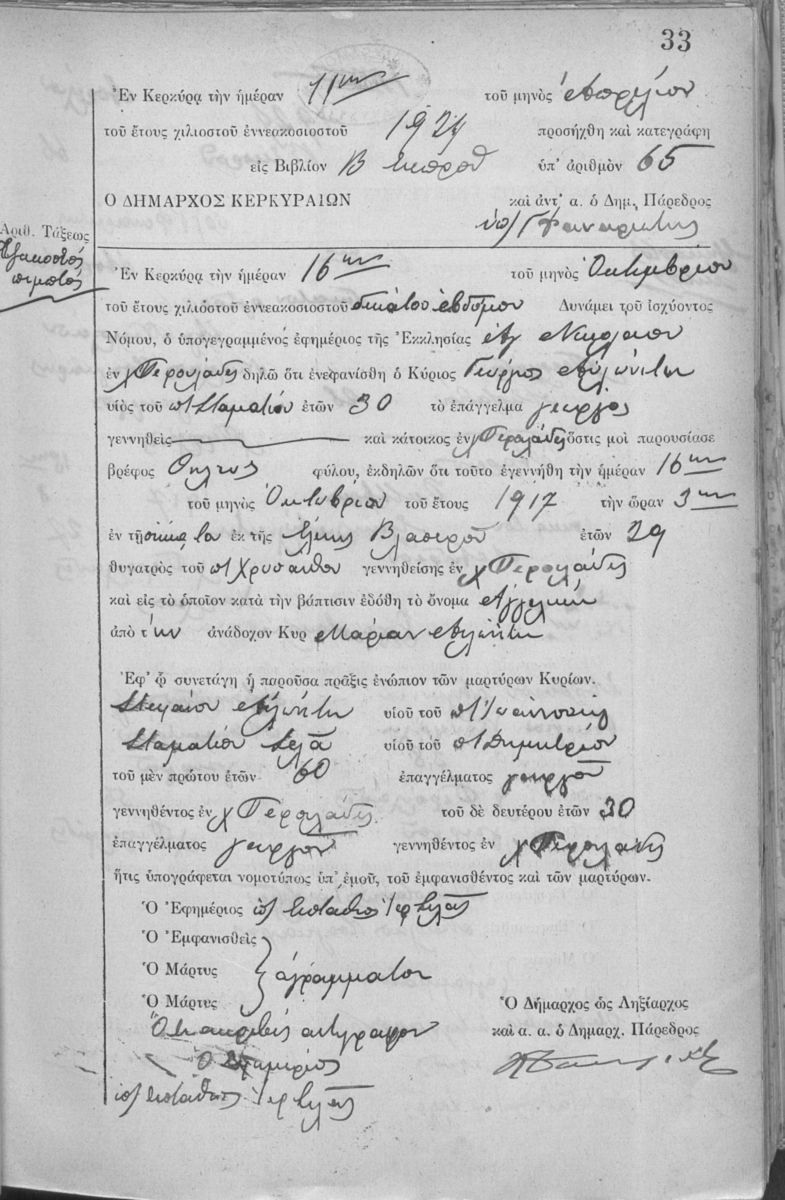 33
Ἐν Κερκύρᾳ τὴν ἡμέραν 11ην τοῦ μηνὸς Ἀπριλίου
τοῦ ἔτους χιλιοστοῦ ἐννεακοσιοστοῦ προσήχθη καὶ κατεγράφη
εἰς Βιβλίον Β ὑπ' ἀριθμὸν 65
Ο ΔΗΜΑΡΧΟΣ ΚΕΡΚΥΡΑΙΩΝ καὶ ἀντ' α. ὁ Δημ. Πάρεδρος
Ἀριθ. Τάξεως
Ἑξηκοστὸς
πέμπτος
Ἐν Κερκύρᾳ τὴν ἡμέραν 16ην τοῦ μηνὸς Ὀκτωμβρίου
τοῦ ἔτους χιλιοστοῦ ἐννεακοσιοστοῦ δεκάτου ἑβδόμου Δυνάμει τοῦ ἰσχύοντος
Νόμου, ὁ ὑπογεγραμμένος ἐφημέριος τῆς Ἐκκλησίας Ἁγ Νικολάου
ἐν χ Περουλάδες δηλῶ ὅτι ἐνεφανίσθη ὁ Κύριος Γεώργιος Αὐλωνίτη
υἱὸς τοῦ πτ Σταματίου ἐτῶν 30 τὸ ἐπάγγελμα γεωργὸς
γεννηθεὶς καὶ κάτοικος ἐν χ Περουλάδες ὅστις μοὶ παρουσίασε
βρέφος Θήλεος φύλου, ἐκδηλῶν ὅτι τοῦτο ἐγεννήθη τὴν ἡμέραν 16ην
τοῦ μηνὸς Ὀκτωβρίου τοῦ ἔτους 1917 τὴν ὥραν 3ην
ἐν τῇ οἰκίᾳ του ἐκ τῆς Ἑλένης ἐτῶν 29
θυγατρὸς τοῦ πτ Χρυσανθου γεννηθείσης ἐν χ Περουλάδες
καὶ εἰς τὸ ὁποῖον κατὰ τὴν βάπτισιν ἐδόθη τὸ ὄνομα Ἀγγελικὴ
ἀπὸ τὴν ἀνάδοχον Κυρ Μαρίαν Αὐλωνίτη
Ἐφ' ᾧ συνετάγη ἡ παροῦσα πρᾶξις ἐνώπιον τῶν μαρτύρων Κυρίων.
Στεφάνου Αὐλωνίτη υἱοῦ τοῦ
Σταματίου Σελᾶ υἱοῦ τοῦ πτ Δημητρίου
τοῦ μὲν πρώτου ἐτῶν 60 ἐπαγγέλματος γεωργοῦ
γεννηθέντος ἐν χ Περουλάδες τοῦ δὲ δευτέρου ἐτῶν 30
ἐπαγγέλματος γεωργοῦ γεννηθέντος ἐν χ Περουλάδες
ἥτις ὑπογράφεται νομοτύπως ὑπ' ἐμοῦ, τοῦ ἐμφανισθέντος καὶ τῶν μαρτύρων.
Ὁ Ἐφημέριος ὑπ Εὐστάθιος Ἱερ Σελᾶς
Ὁ Ἐμφανισθεὶς
Ὁ Μάρτυς ἀγράμματοι
Ὁ Μάρτυς
Ὁ Δήμαρχος ὡς Ληξίαρχος
καὶ α. α. ὁ Δημαρχ. Πάρεδρος
Ὅτι ἀκριβὲς ἀντίγραφον
Ὁ Ἐφημέριος
ὑπ Εὐστάθιος Ἱερ Σελᾶς